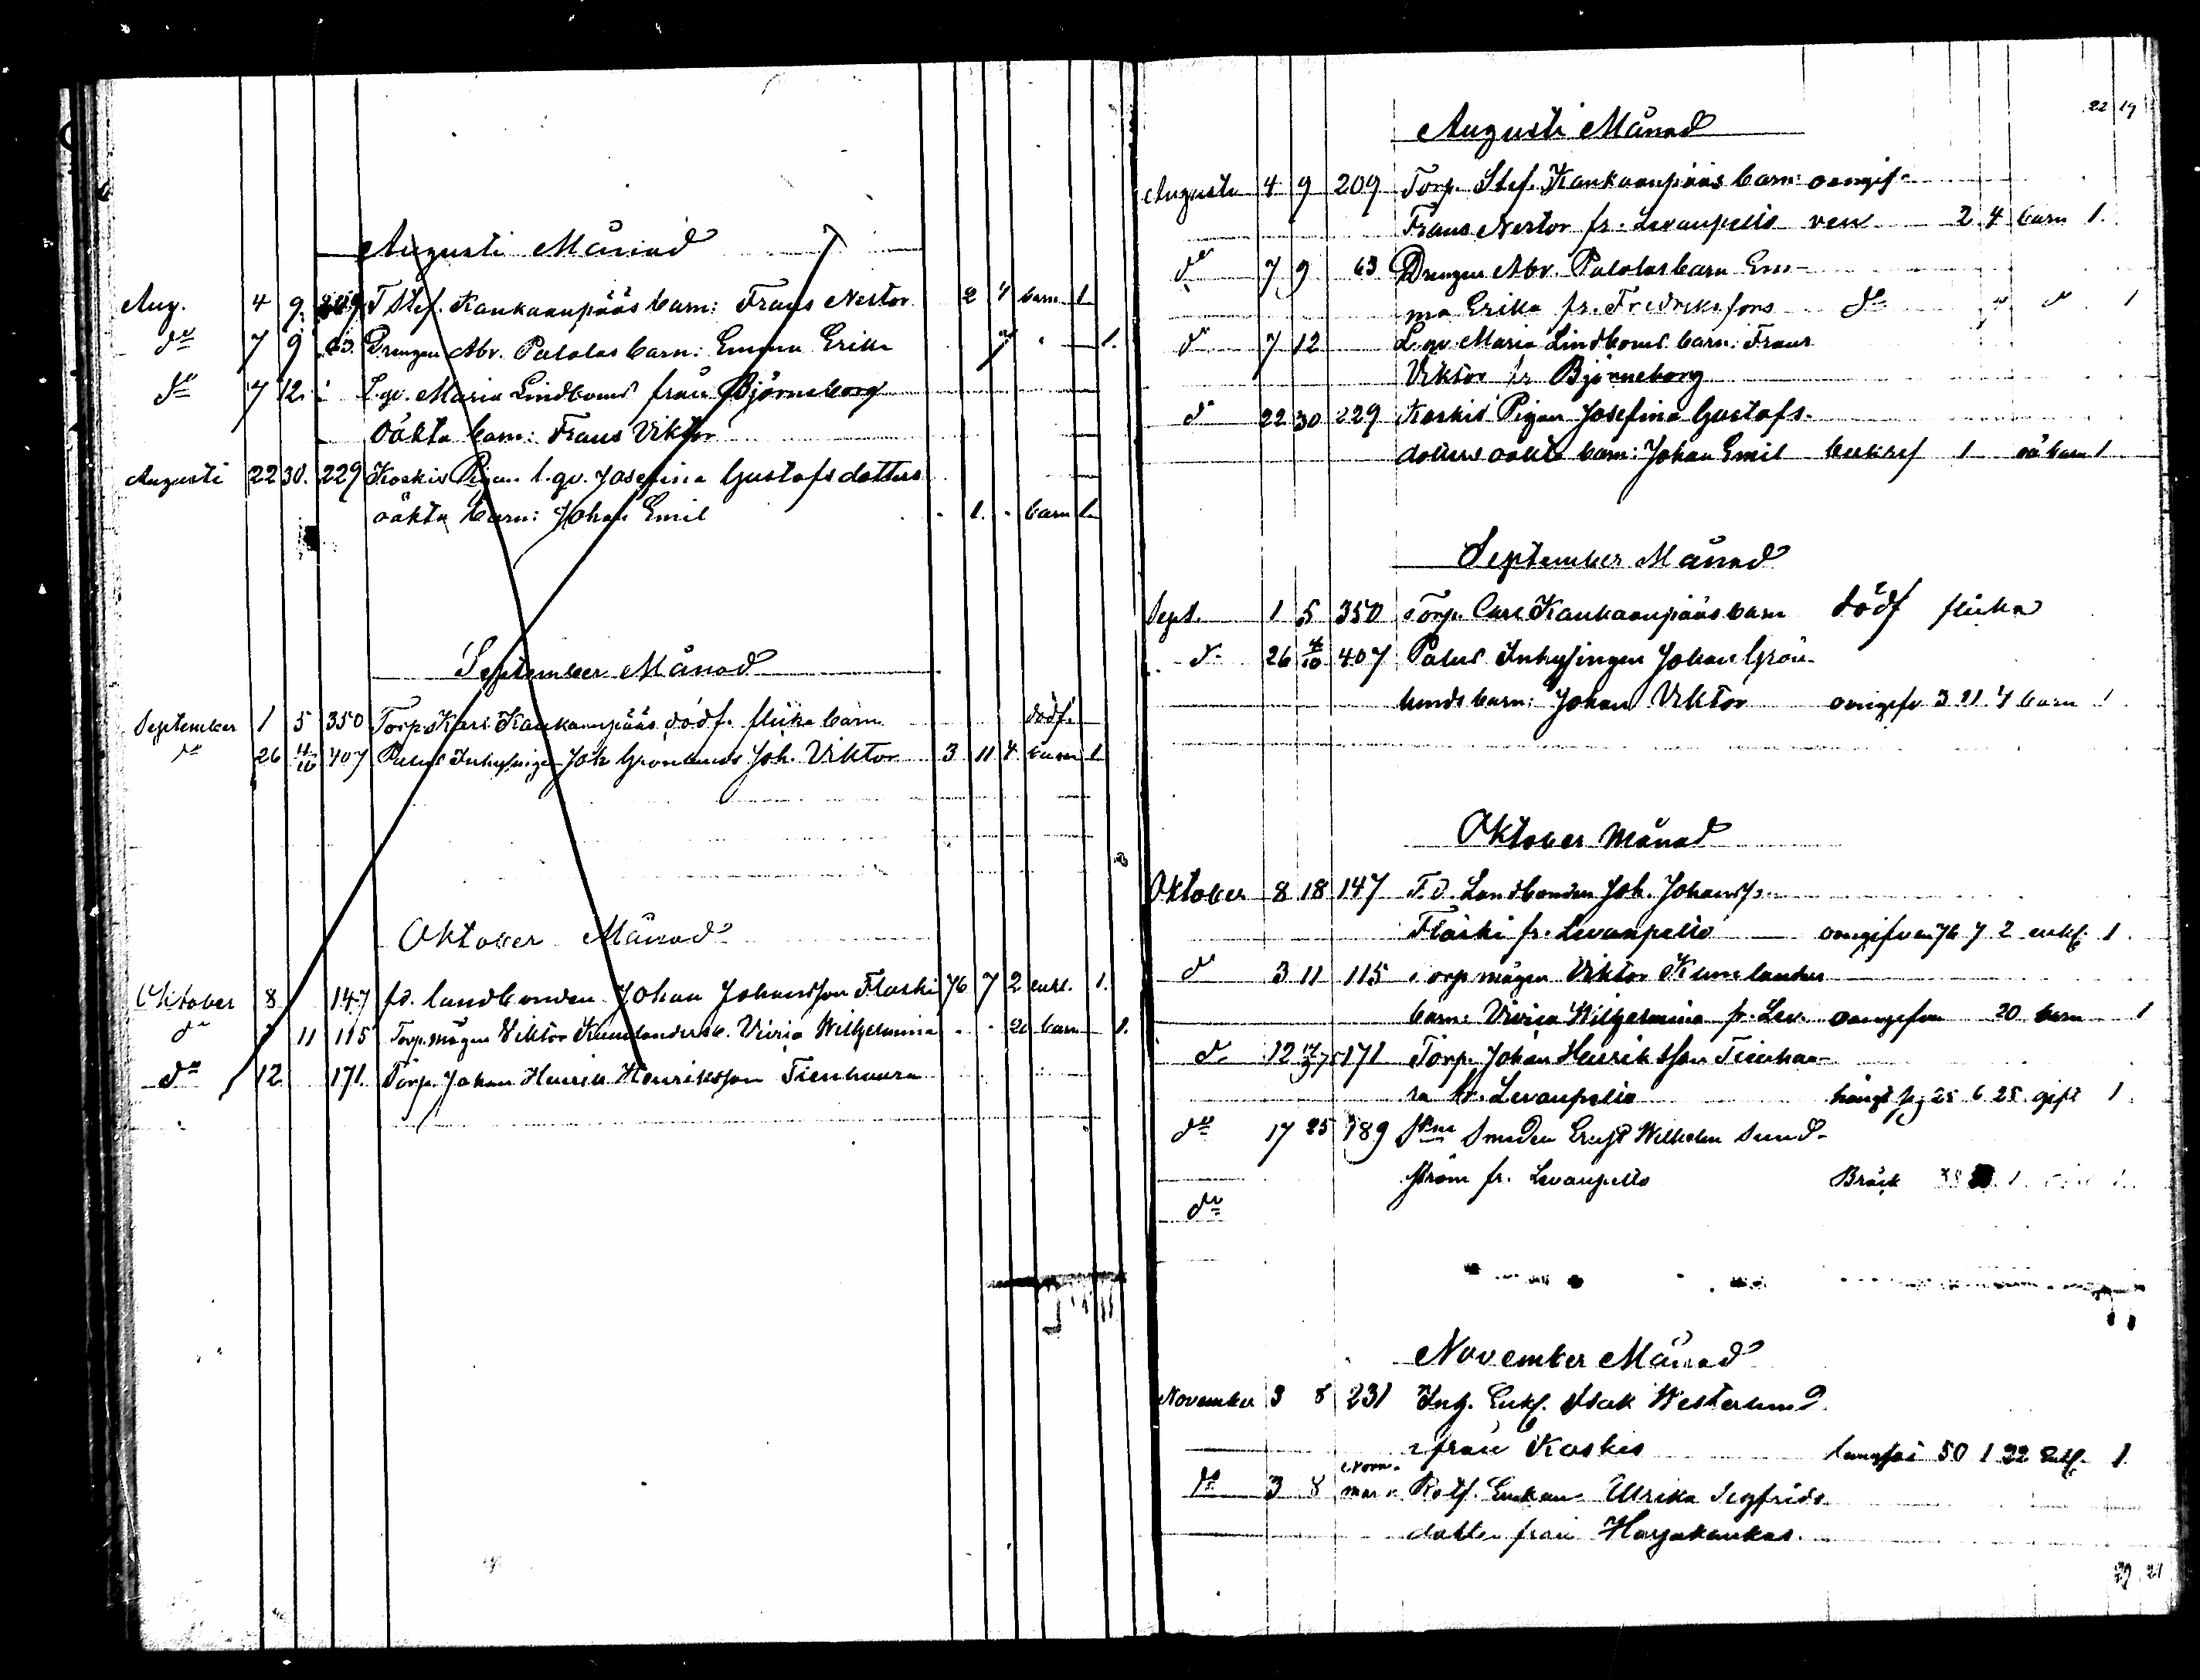 Augusti Månad
Aug. 4 9. 209 T Stef. Kankaanpääs barn: Frans Nestor 2 4 barn 1
do 7 9 63. Drengen Abr. Palolas barn: Emma Erika 1.
do 7 12. L. qv. Maria Lindboms från Björneborg
oäkta barn: Frans Viktor
Augusti 22 30. 229 Koskis Pigan l. qv. Josefina Gustafsdotters
oäkta barn: Johan Emil 1. barn 1
September Månad
September 1 5 350 Torp. Karl Kankaanpääs dödf. flicka barn dödf.
do 26 4/10 407 Palus Inhysingen Joh Grönlunds Joh. Viktor 3 11 4 barn 1
Oktober Månad
Oktober 8 147 fd. landbonden Johan Johansson Flaski 76 7 2 enkl. 1.
do 11 115 Torp. mågen Viktor Kumlanders b. Vivia Wilhelmina 20 barn 1.
do 12 171. Torp. Johan Henrik Henriksson Tienhaara
22 19
Augusti Månad
Augusti 4 9 209 Torp. Stef. Kankaanpääs barn: oangif-
Frans Nestor fr. Levanpelto ven 2 4 barn 1.
do 7 9 63 Drengen Abr. Palolas barn Em-
ma Erika fr. Fredriksfors do 1
do 7 12 L. qv. Maria Lindboms barn: Frans
Viktor fr Björneborg
do 22 30 229 Koskis Pigan Josefina Gustafs-
dotters oäkta barn: Johan Emil 1 oä barn 1
September Månad
Sept. 1 5 350 Torp. Carl Kankaanpääs barn dödf flicka
do 26 4/10 407 Palus Inhysingen Johan Grön-
lunds barn: Johan Viktor oangifv 3 11 4 barn 1
Oktober Månad
Oktober 8 18 147 F.d. Landbonden Joh. Johanss.
Flaski fr. Levanpelto oangifven 76 7 2 enkl. 1.
do 3 11 115 Torp mågen Viktor Kumlanders
barn: Vivia Wilhelmina fr. Lev. oangifven 20 barn 1
do 12 171 Torp. Johan Henriksson Tienhaa-
ra fr. Levanpelto hängt sig 25 6 25 gift 1.
do 17 25 789 Smeden Ernst Wilhelm Sund-
ström fr. Levanpelto Bråck
do
November Månad
November 3 8 231 Inh. Enkl. Isak Westerlund
från Koskis lungsot 50 1 22 Enkl. 1.
do 3 8 Norrmark Rotf. Enkan Ulrika Sigfrids
dotter från Harjakankas.
29 21